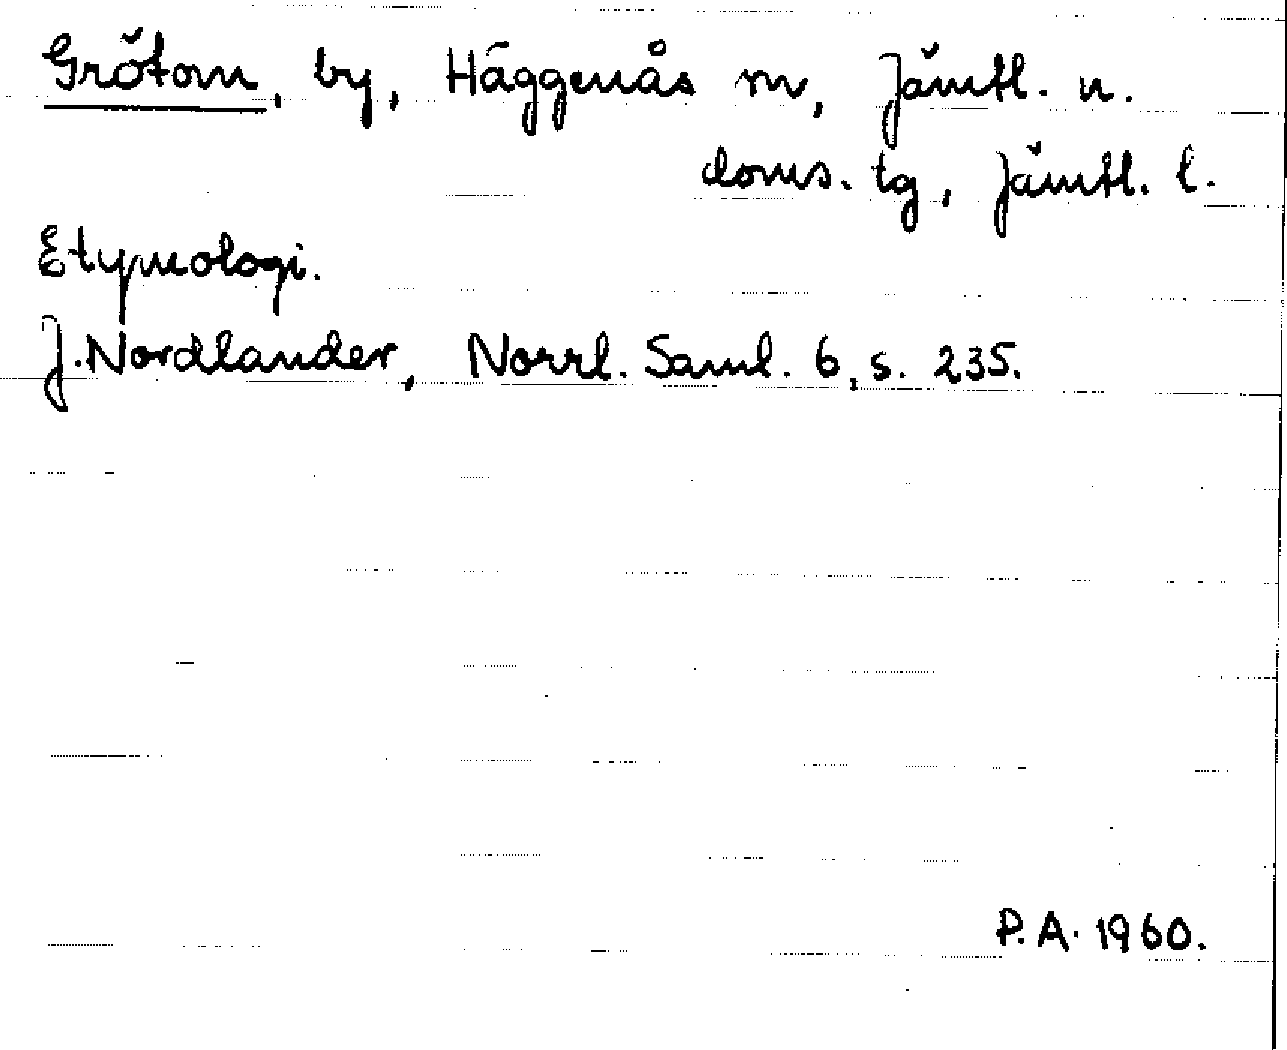 Grötom, by, Häggenås sn, Jämtl. n.
doms. tg, Jämtl. l.
Etymologi.
J. Nordlander, Norrl. Saml. 6, s. 235.
P.A. 1960.